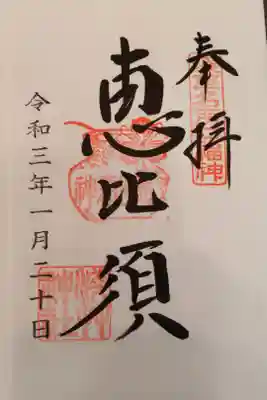 奉拝
恵比須
令和三年一月二十日